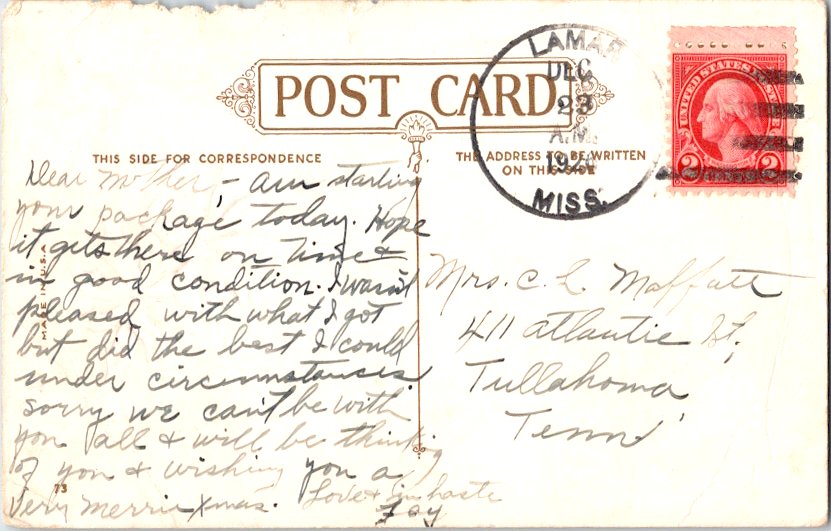 POST CARD
THIS SIDE FOR CORRESPONDENCE
THE ADDRESS TO BE WRITTEN
ON THIS SIDE
LAMAR
DEC
23
A.M.
MISS.
UNITED STATES
2 2
Dear Mother, - am starting
your package today. Hope
it gets there on time &
in good condition. I wasn't
pleased with what I got
but did the best I could
under circumstances.
sorry we can't be with
you all & will be thinking
of you & wishing you a
Very Merrie Xmas. Love & in haste
Fay
Mrs. C. L. Moffatt
411 Atlantic St,
Tullahoma
Tenn.
MADE U.S.A.
73